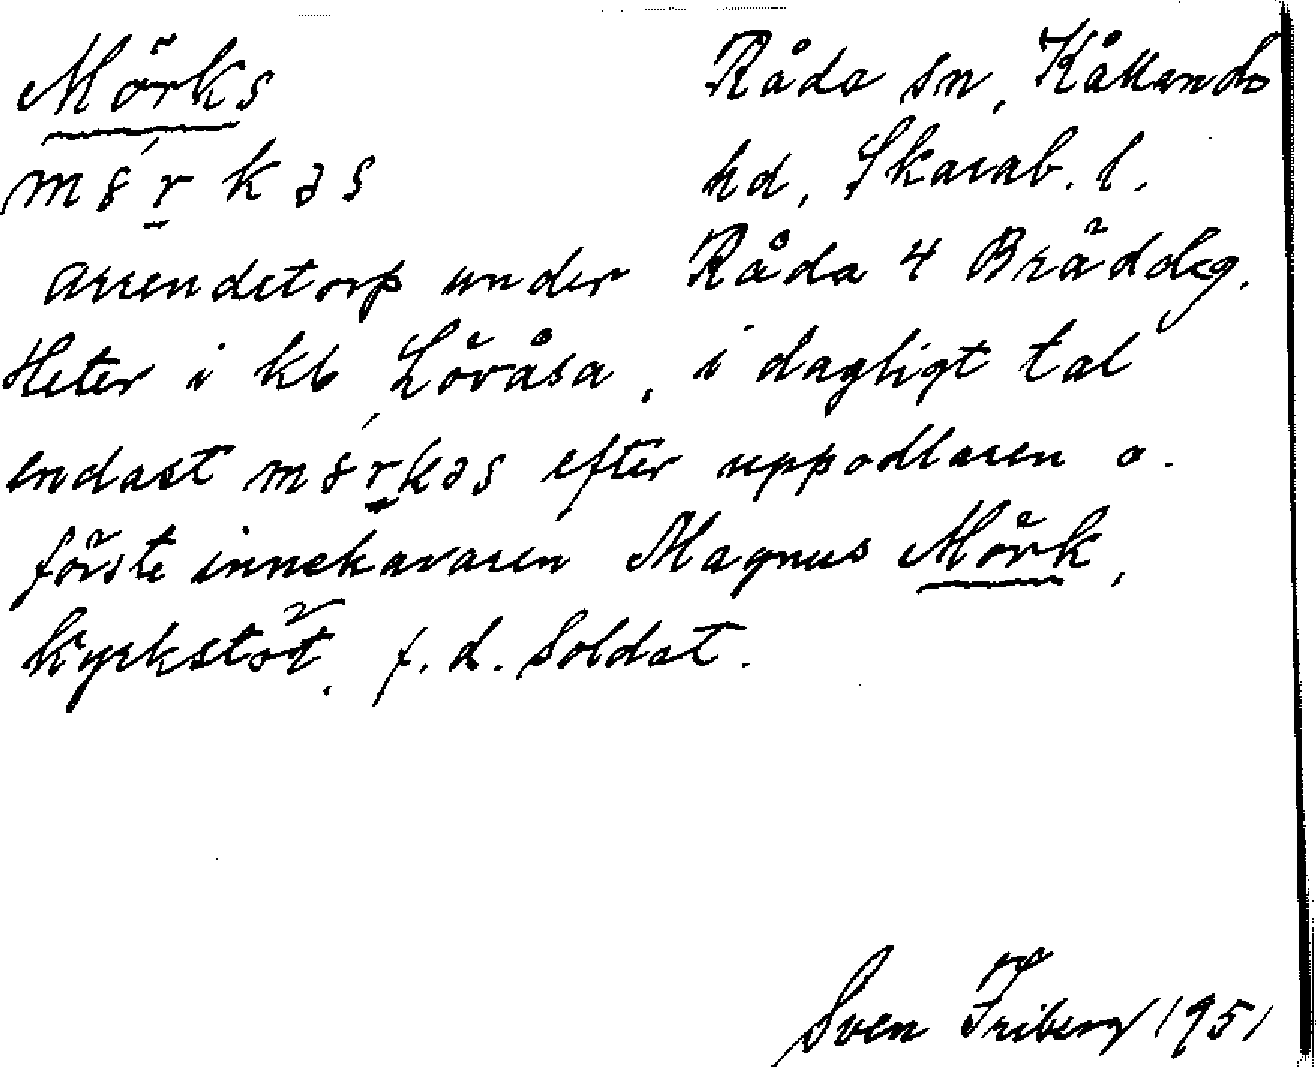 Mörks
Råda sn, Kållands
m8rkəs
hd, Skarab. l.
arrendetorp under Råda 4 Bräddeg.
Heter i kb Lövåsa, i dagligt tal
endast m8rkəs efter uppodlaren o.
förste innehavaren Magnus Mörk,
kyrkstöt, f.d. soldat.
Sven Friberg 1951